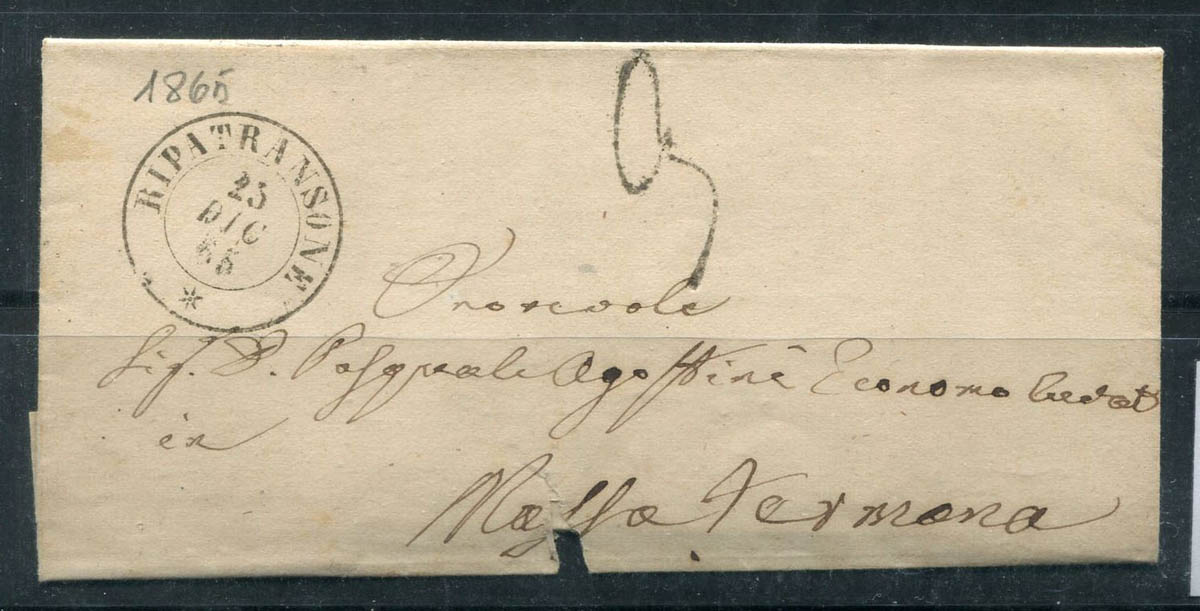 1865
RIPATRANSONE
25
DIC
65
Onorevole
Sig. D. Pasquale Agostini Economo
in
Massa Fermana